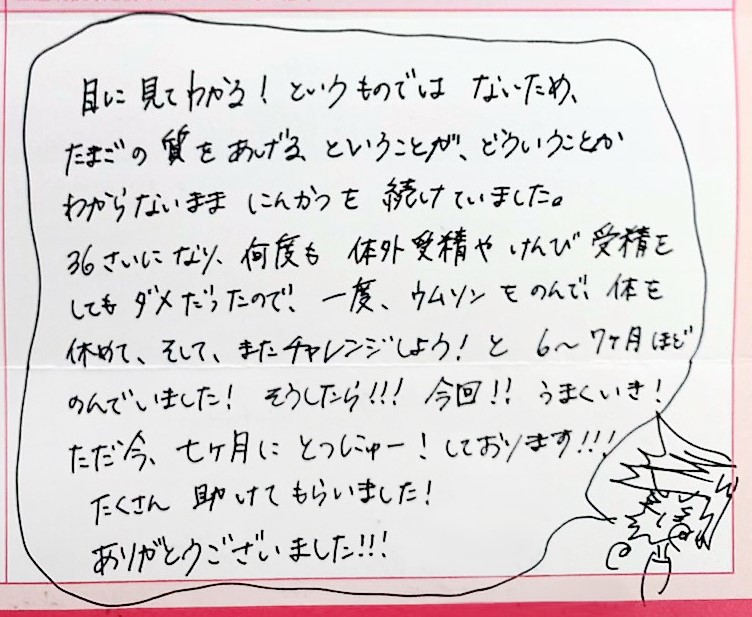 目に見てわかる！というものでは ないため、
たまごの 質を あげる、ということが、どういうことか
わからないまま にんかつを 続けていました。
36さいになり、何度も 体外受精や けんび 受精を
しても ダメだったので、一度、ウムソンをのんで、体を
休めて、そして、またチャレンジしよう！と 6〜7ヶ月ほど
のんでいました！ そうしたら！！！ 今回！！ うまくいき！
ただ今、七ヶ月に とつにゅー！しております！！！
たくさん 助けてもらいました！
ありがとうございました！！！